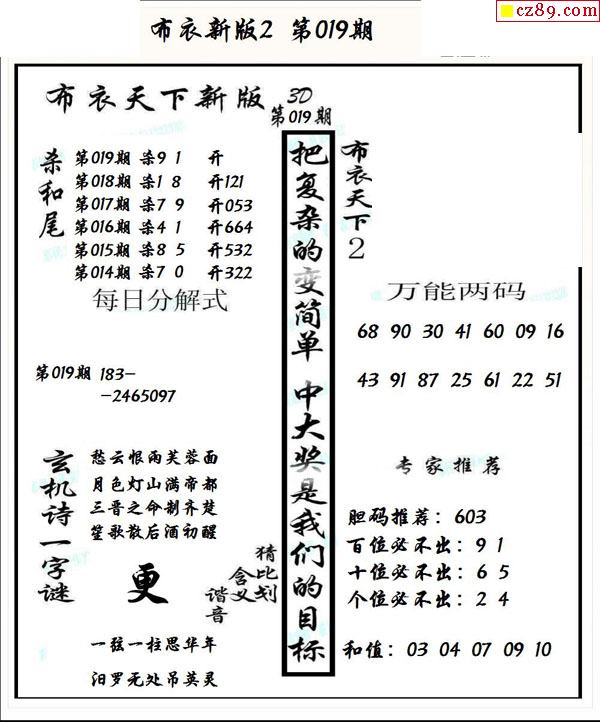 cz89.com
布衣新版2 第019期
布衣天下新版 3D
第019期
杀和尾
第019期 杀9 1 开
第018期 杀1 8 开121
第017期 杀7 9 开053
第016期 杀4 1 开664
第015期 杀8 5 开532
第014期 杀7 0 开322
每日分解式
第019期 183-
-2465097
玄机诗一字谜
愁云恨雨芙蓉面
月色灯山满帝都
三晋之命制齐楚
笙歌散后酒初醒
更
猜比划
含义
谐音
一弦一柱思华年
汨罗无处吊英灵
把复杂的变简单 中大奖是我们的目标
布衣天下2
万能两码
68 90 30 41 60 09 16
43 91 87 25 61 22 51
专家推荐
胆码推荐：603
百位必不出：9 1
十位必不出：6 5
个位必不出：2 4
和值：03 04 07 09 10